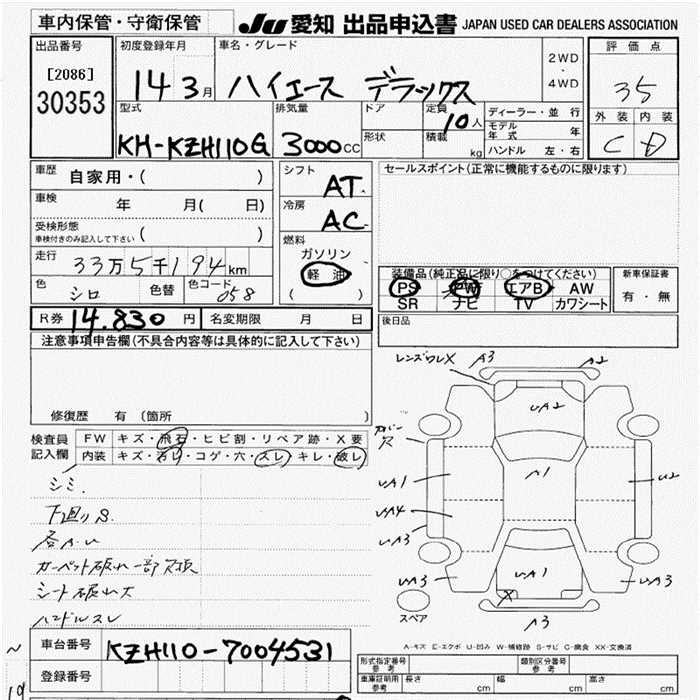 車内保管・守衛保管
JU 愛知 出品申込書 JAPAN USED CAR DEALERS ASSOCIATION
出品番号
[2086]
30353
初度登録年月
14 3月
車名・グレード
ハイエース デラックス
2WD
・
4WD
評価点
35
外装 内装
C D
型式
KH-KZH110G
排気量
3000cc
ドア
形状
定員
10人
積載
kg
ディーラー・並行
モデル年式 年
ハンドル 左・右
車歴
自家用・( )
車検
年 月( 日)
受検形態
車検付きのみ記入して下さい
( )
走行
33万5千194km
色
シロ
色替
色コード
058
シフト
AT
冷房
AC
燃料
ガソリン
軽油
( )
セールスポイント(正常に機能するものに限ります)
装備品(純正品に限り○をつけてください)
PS PW エアB AW
SR ナビ TV カワシート
新車保証書
有・無
R券 14.830円
名変期限 月 日
後日品
注意事項申告欄(不具合内容等は具体的に記入して下さい)
修復歴 有 (箇所 )
検査員
記入欄
FW キズ・飛石・ヒビ割・リペア跡・X要
内装 キズ・汚レ・コゲ・穴・スレ・キレ・破レ
シミ.
下廻りS.
各A.U
カーペット破れ一部欠損
シート破れ大
ハンドルスレ
レンズワレX A3 A2
UA2
カバー
穴
A1
UA1
U2
UA4
UA3
UA3
UA1
UA3
X
スペア
A3
A-キズ E-エクボ U-凹み W-補修跡 S-サビ C-腐食 XX-交換済
車台番号
KZH110-7004531
登録番号
形式指定番号
参考
類別区分番号
参考
車庫証明用
参考
長さ cm
幅 cm
高さ cm